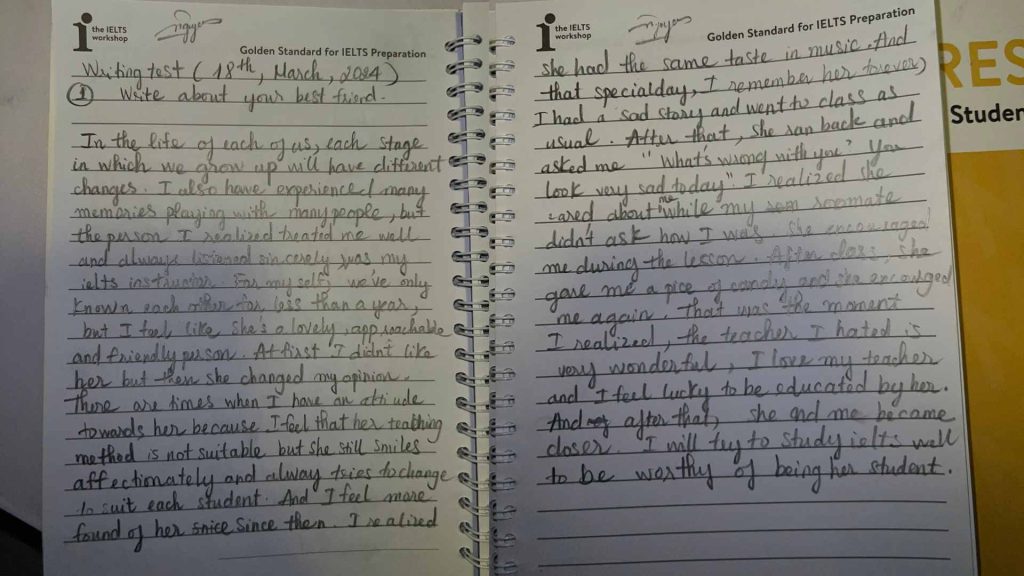 the IELTS
workshop
Nguyen
Golden Standard for IELTS Preparation
Writing test ( 18th, March, 2024 )
① Write about your best friend.
In the life of each of us, each stage
in which we grow up will have different
changes. I also have experienced many
memories playing with many people, but
the person I realized treated me well
and always listened sincerely was my
ielts instructor. For my self, we've only
known each other for less than a year,
but I feel like she's a lovely, approachable
and friendly person. At first I didn't like
her but then she changed my opinion.
There are times when I have an attiude
towards her because I feel that her teaching
method is not suitable but she still smiles
affectionately and alway tries to change
to suit each student. And I feel more
found of her snice since then. I realized
the IELTS
workshop
Nguyen
Golden Standard for IELTS Preparation
she had the same taste in music. And
that specialday, I remember her forever,
I had a sad story and went to class as
usual. After that, she ran back and
asked me "What's wrong with you? You
look very sad today". I realized she
cared about me while my room roomate
didn't ask how I was. She encouraged
me during the lesson. After class, she
gave me a pice of candy and she encouraged
me again. That was the moment
I realized, the teacher I hated is
very wonderful, I love my teacher
and I feel lucky to be educated by her.
And my after that, she and me became
closer. I will try to study ielts well
to be worthy of being her student.
RES
Studen